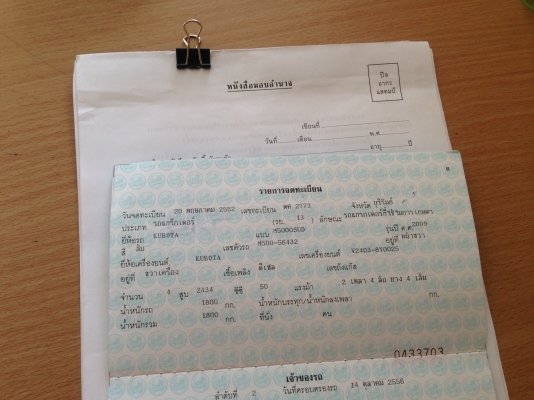 หนังสือมอบอำนาจ
ปิด
อากร
แสตมป์
เขียนที่
วันที่ เดือน พ.ศ.
อายุ ปี
รายการจดทะเบียน
วันจดทะเบียน 20 พฤษภาคม 2552 เลขทะเบียน 2773 จังหวัด บุรีรัมย์
ประเภท รถแทรกเตอร์ (รย. 13 ) ลักษณะ รถแทรกเตอร์ที่ใช้ในการเกษตร
ยี่ห้อรถ KUBOTA แบบ M5000SUD รุ่นปี ค.ศ. 2009
สี ส้ม เลขตัวรถ M500-56432 อยู่ที่
ยี่ห้อเครื่องยนต์ KUBOTA เลขเครื่องยนต์ V2403-8T0025
อยู่ที่ ขวาเครื่อง เชื้อเพลิง ดีเซล เลขถังแก๊ส
จำนวน 4 สูบ 2434 ซีซี 50 แรงม้า 2 เพลา 4 ล้อ ยาง 4 เส้น
น้ำหนักรถ 1800 กก. น้ำหนักบรรทุก/น้ำหนักลงเพลา กก.
น้ำหนักรวม 1800 กก. ที่นั่ง คน
0433703
เจ้าของรถ
ลำดับที่ 2 วันที่ครอบครองรถ 14 ตุลาคม 2556